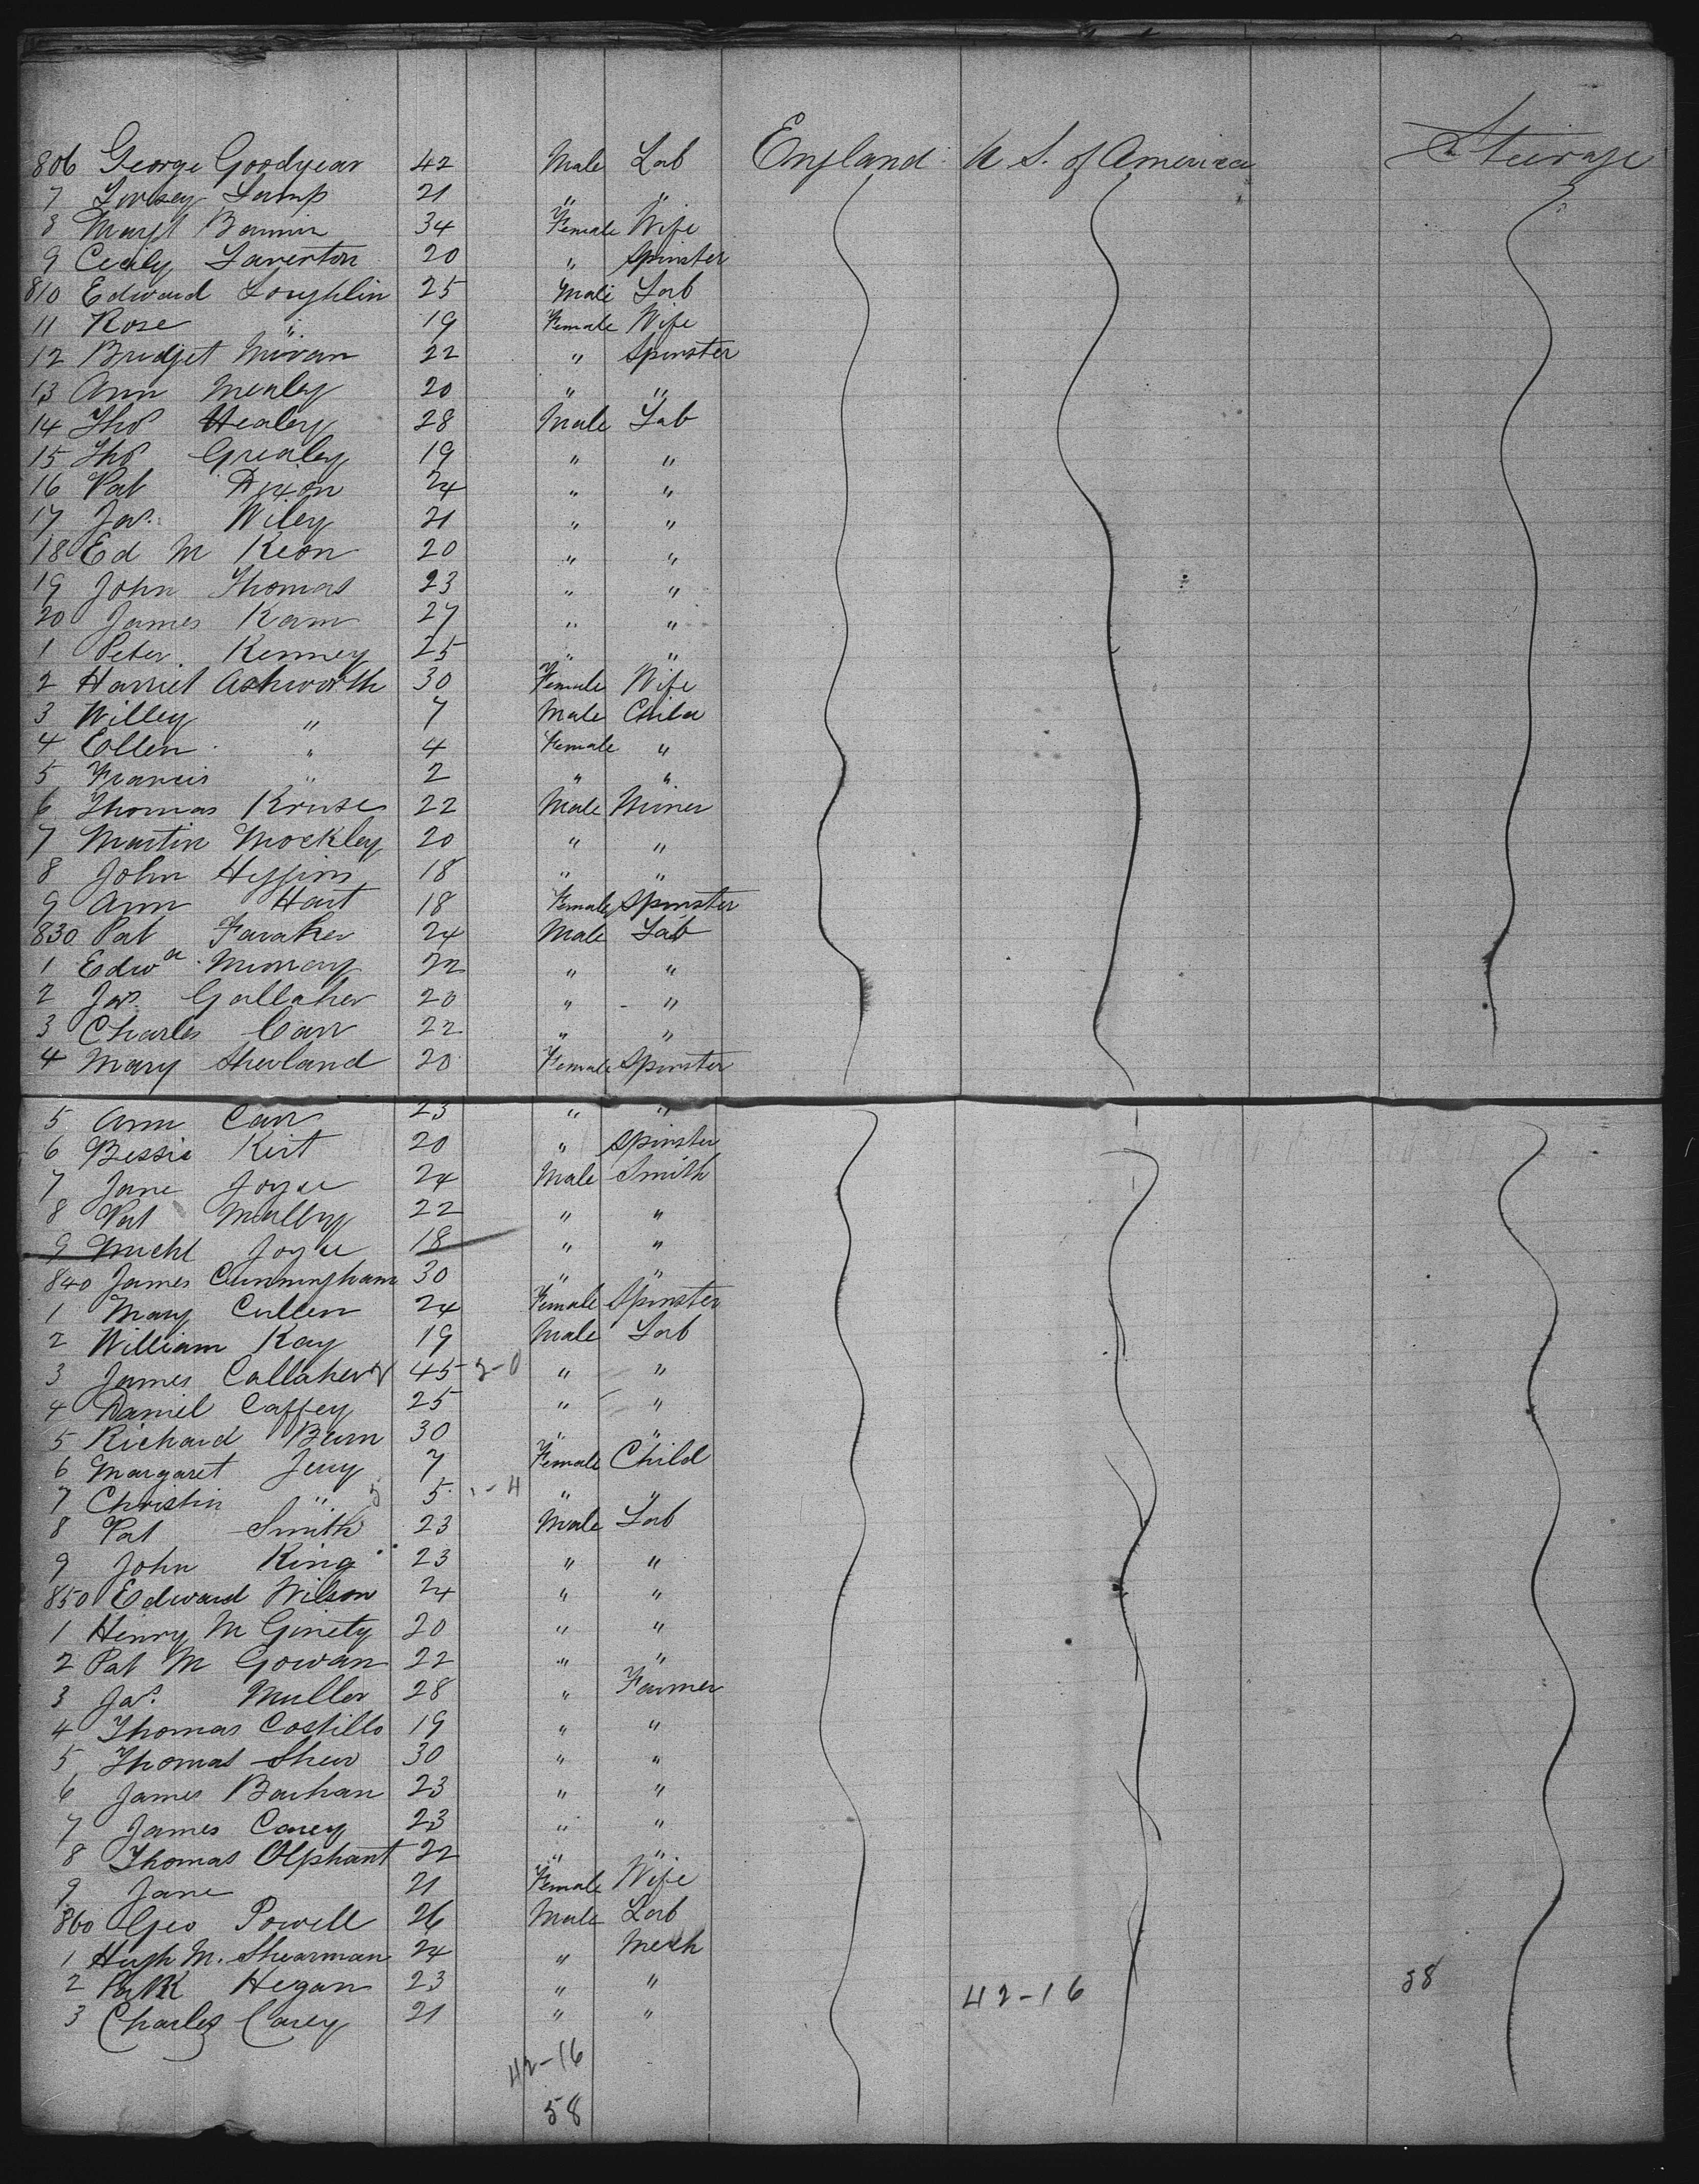 806 George Goodyear 42 Male Lab England U S. of America Steerage
7 Livesey Lamp 21 " "
8 Margt Bannin 34 Female Wife
9 Cecily Laverton 20 " Spinster
810 Edward Loughlin 25 Male Lab
11 Rose " 19 Female Wife
12 Bridget 22 " Spinster
13 Ann Mealey 20 " "
14 Thos Healey 28 Male Lab
15 Thos Grealey 19 " "
16 Pat Dixon 24 " "
17 Jas. Wiley 21 " "
18 Ed M Keon 20 " "
19 John Thomas 23 " "
20 James Kam 27 " "
1 Peter Kenney 25 " "
2 Harriet Ashworth 30 Female Wife
3 Willey " 7 Male Child
4 Ellen " 4 Female "
5 Francis " 2 " "
6 Thomas Kruse 22 Male Miner
7 Martin Mockley 20 " "
8 John Higgins 18 " "
9 Ann Hart 18 Female Spinster
830 Pat Faraker 24 Male Lab
1 Edwd 22 " "
2 Jas. Gallaher 20 " "
3 Charles Carr 22 " "
4 Mary Sherland 20 Female Spinster
5 Ann Carr 23 " "
6 Bessie Kirt 20 " Spinster
7 Jane Joyce 24 Male Smith
8 Pat Mullby 22 " "
9 Michl Joyce 18 " "
840 James Cunningham 30 " "
1 Mary Cullen 24 Female Spinster
2 William Kay 19 Male Lab
3 James Callaher 45 " "
4 Daniel Caffey 25 " "
5 Richard Burn 30 " "
6 Margaret Jeuy 7 Female Child
7 Christin " 5 " "
8 Pat Smith 23 Male Lab
9 John King 23 " "
850 Edward Wilson 24 " "
1 Henry M Ginety 20 " "
2 Pat M Gowan 22 " "
3 Jas. Muller 28 " Farmer
4 Thomas Costillo 19 " "
5 Thomas Shew 30 " "
6 James Barhan 23 " "
7 James Carey 23 " "
8 Thomas Olphant 22 " "
9 Jane 21 Female Wife
860 Geo Powell 26 Male Lab
1 Hugh M. Shearman 24 " Mech
2 Hegan 23 " "
3 Charles Carey 21 " "
42-16 58
42-16
58